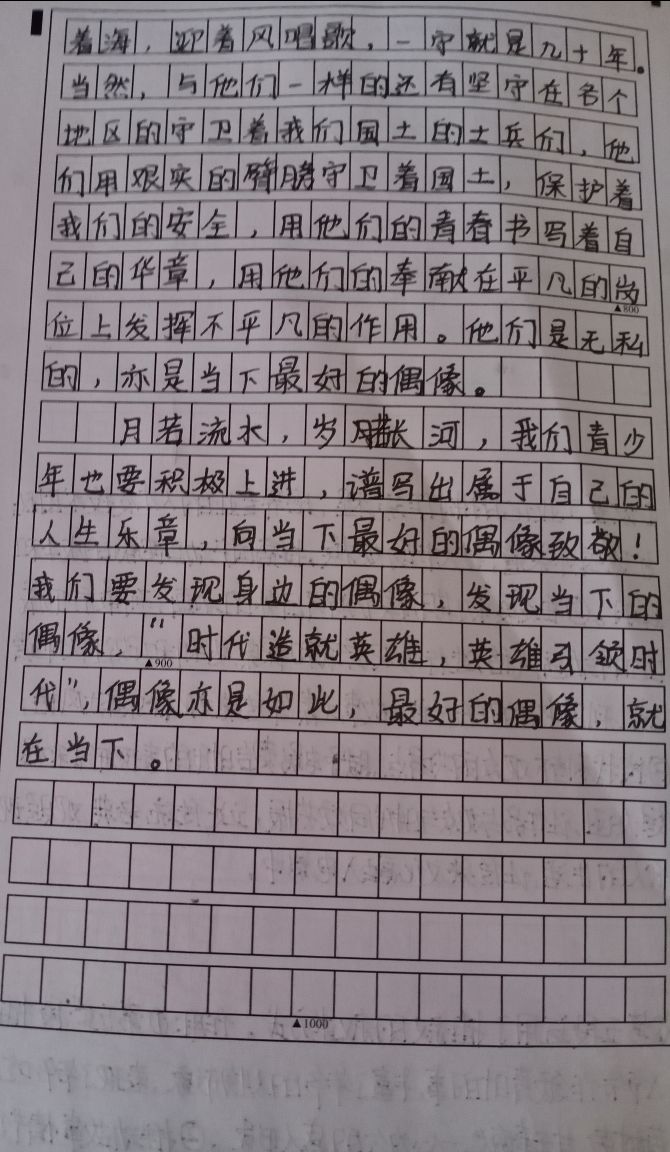 着海，迎着风唱歌，一守就是几十年。
当然，与他们一样的还有坚守在各个
地区的守卫着我们国土的士兵们，他
们用艰实的臂膀守卫着国土，保护着
我们的安全，用他们的青春书写着自
己的华章，用他们的奉献在平凡的岗
▲800
位上发挥不平凡的作用。他们是无私
的，亦是当下最好的偶像。
月若流水，岁长河，我们青少
年也要积极上进，谱写出属于自己的
人生乐章，向当下最好的偶像致敬！
我们要发现身边的偶像，发现当下的
偶像，“时代造就英雄，英雄引领时
▲900
代”，偶像亦是如此，最好的偶像，就
在当下。
▲1000